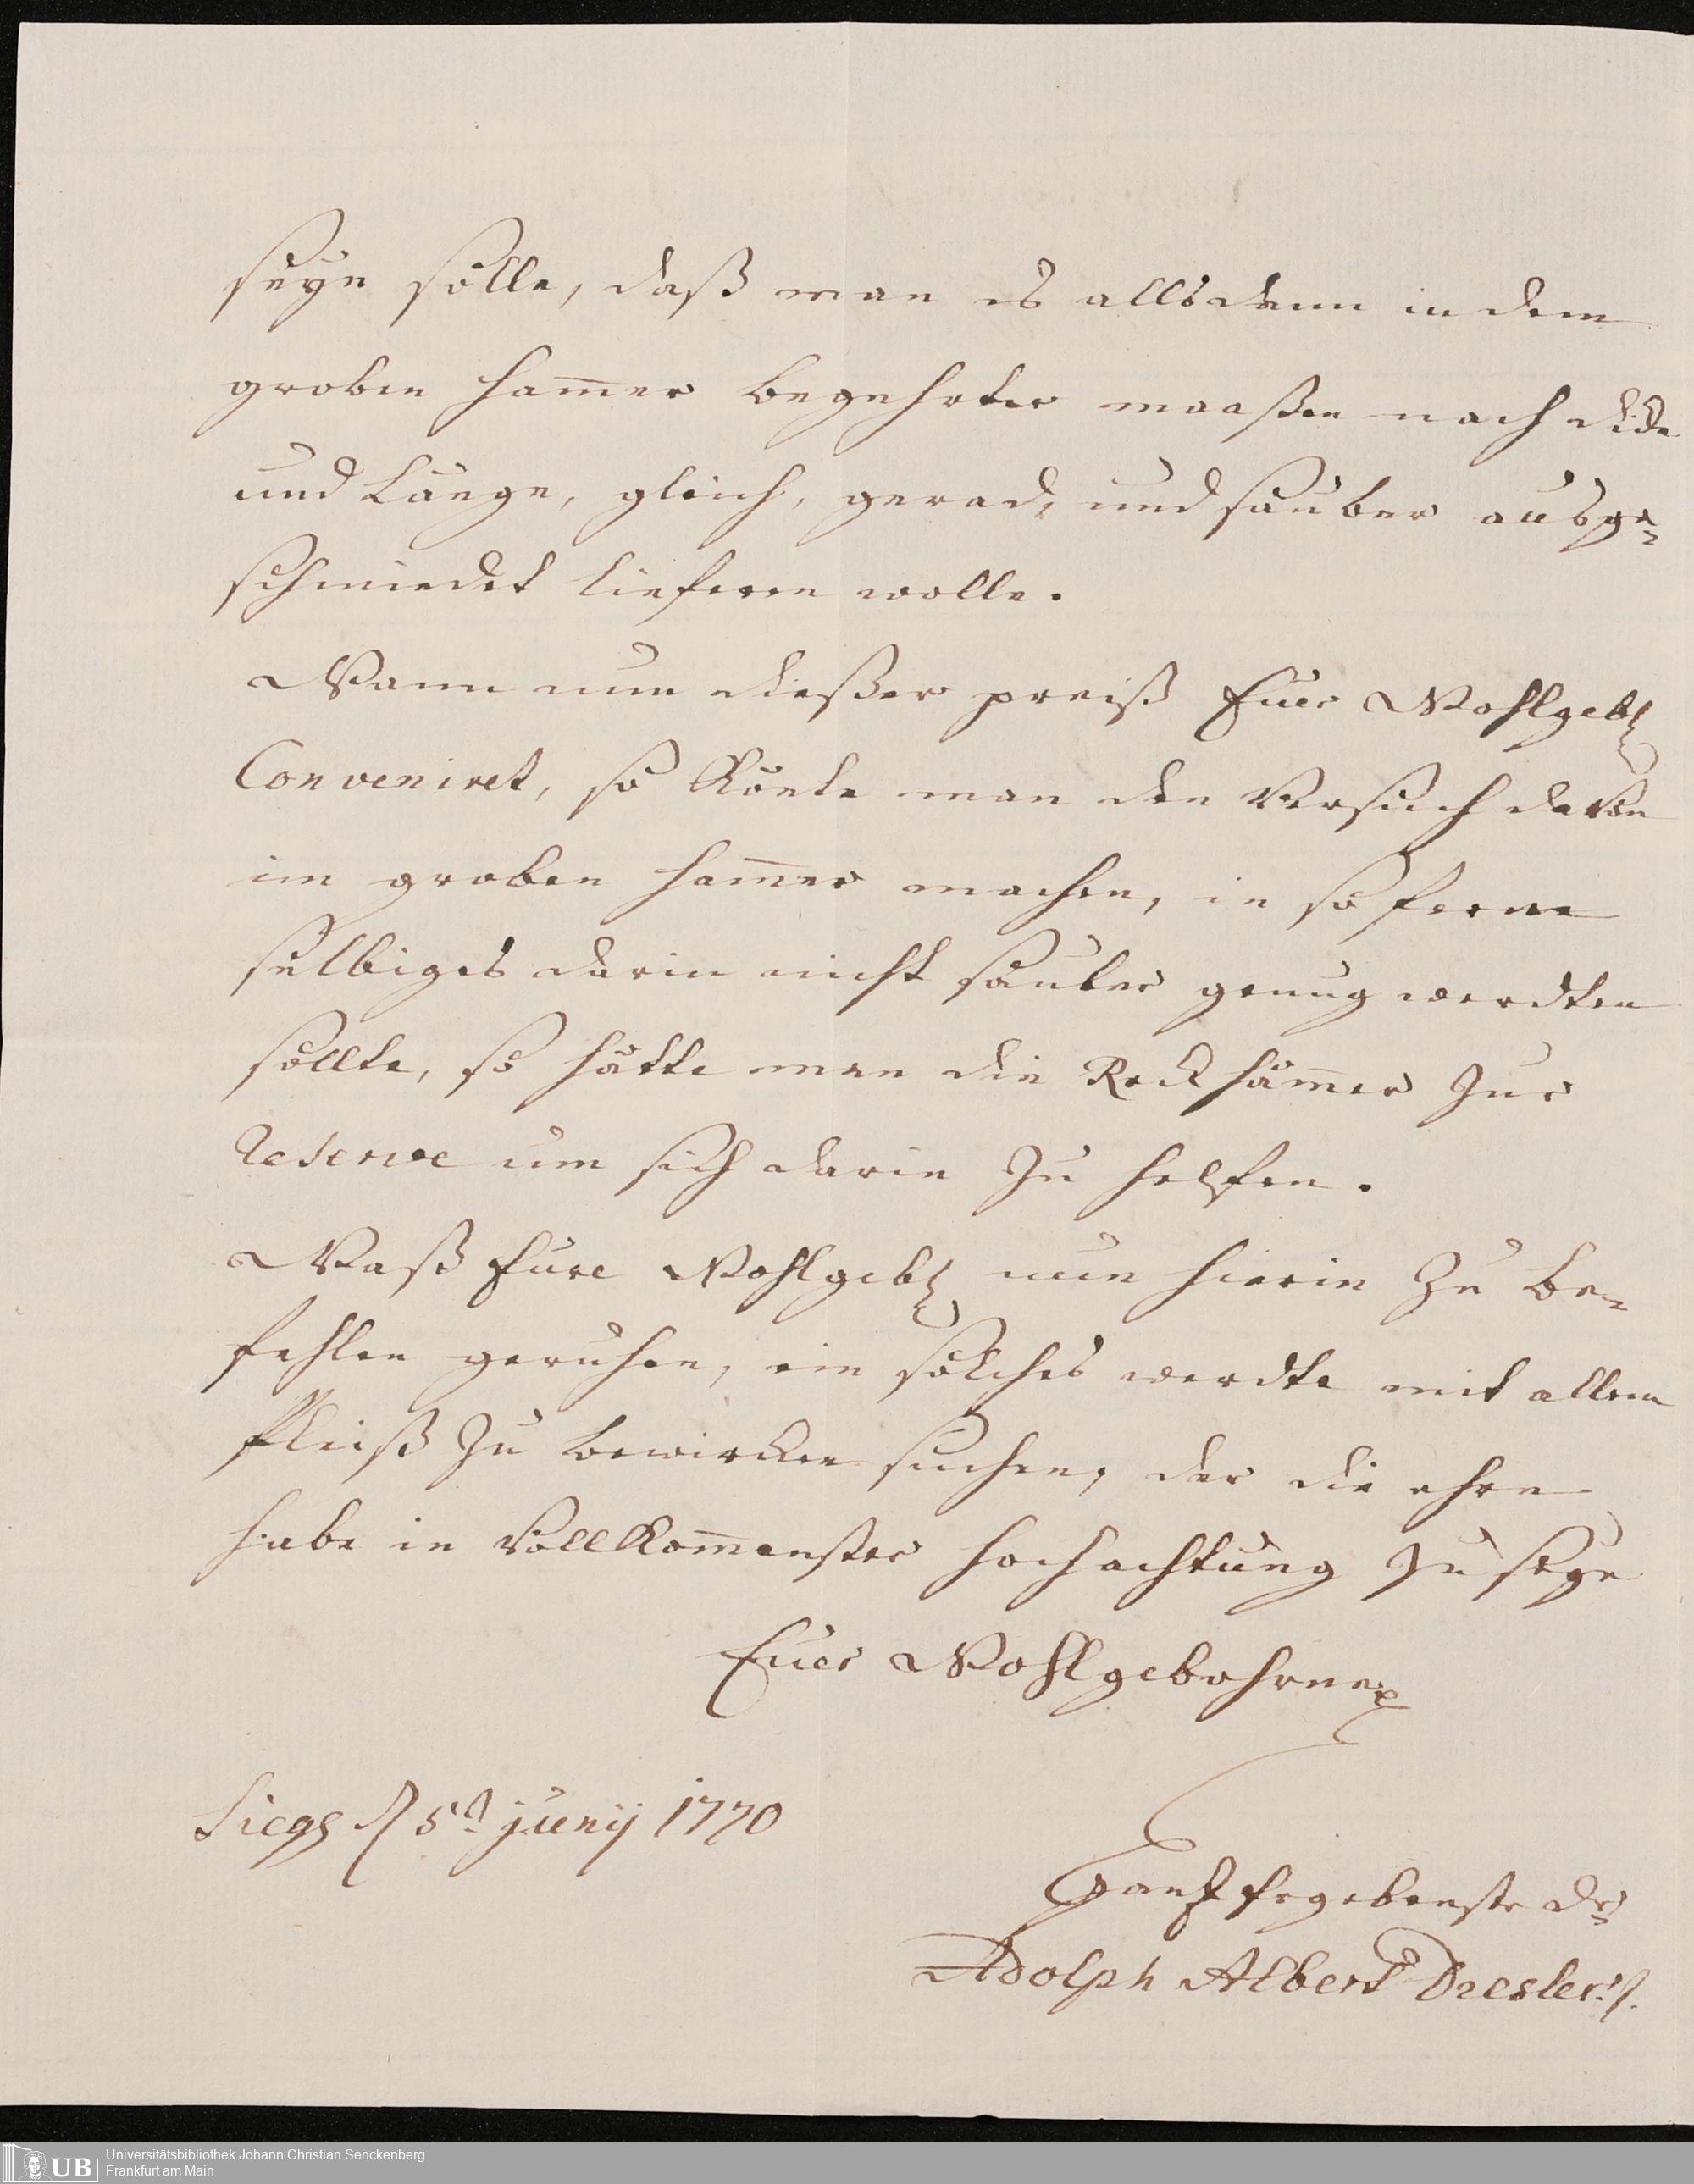 seyn solle, daß man es allsdann in dem
groben ham̄er begehrter maaßen nach dicke
und Länge, gleich, gerad, und sauber ausge-
schmiedet lieferen wolle.
Wann nun dießer preiß Euer Wohlgeb
Conveniret, so könte man den Versuch davon
im groben ham̄er machen, in so ferne
selbiges darin nicht sauber genug werdten
sollte, so hätte man die Reckhäm̄er zur
Reserve um sich darin zu helfen.
Waß Eure Wohlgeb nun hierin zu be-
fehlen geruhen, ein solches werdte mit allem
fleiß zu bewircken suchen, der die ehre
habe in Vollkom̄enster hochachtung zu seyn
Euer Wohlgebohrne
Siegen 5t junij 1770
Gantz Ergebenster
Adolph Albert Dresler
UB
Universitätsbibliothek Johann Christian Senckenberg
Frankfurt am Main